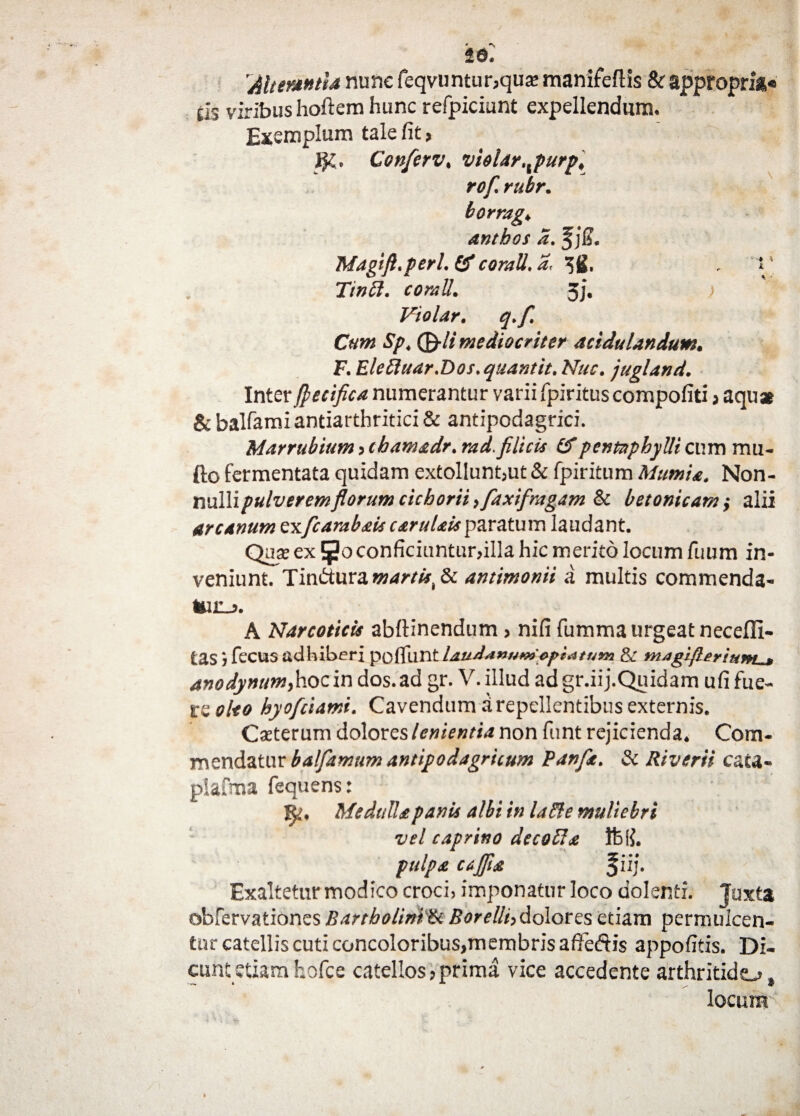 20.
Alterantia nunc ſeqvuntur,quæ manifeſtis & appropria-
tis viribus hoſtem hunc reſpiciunt expellendum.
Exemplum tale ſit,
℞. Conſerv. violar. purp.
roſ. rubr.
borrag.
anthos ā. ℥jß.
Magiſt. perl. & corall. ā. ʒß.
Tinct. corall. ʒj.
Violar. q.ſ.
Cum Sp. 🜕li mediocriter acidulandum.
F. Electuar. Dos. quantit. Nuc. jugland.
Inter ſpecifica numerantur varii ſpiritus compoſiti, aquæ
& balſami antiarthritici & antipodagrici.
Marrubium, chamædr. rad. filicis & pentaphylli cum mu-
ſto fermentata quidam extollunt,ut & ſpiritum Mumiæ. Non-
nulli pulverem florum cichorii, ſaxifragam & betonicam; alii
arcanum ex ſcarabæis cæruleis paratum laudant.
Quæ ex ☿o conficiuntur,illa hic merito locum ſuum in-
veniunt. Tinctura martis, & antimonii à multis commenda-
tur.
A Narcoticis abſtinendum, niſi ſumma urgeat neceſſi-
tas; ſecus adhiberi poſſunt laudanum opiatum & magiſterium
anodynum, hoc in dos. ad gr. V. illud ad gr.iij. Quidam uſi fue-
re oleo hyoſciami. Cavendum à repellentibus externis.
Cæterum dolores lenientia non ſunt rejicienda. Com-
mendatur balſamum antipodagricum Panſæ. & Riverii cata-
plaſma ſequens:
℞. Medullæ panis albi in lacte muliebri
vel caprino decoctæ ℔ß.
pulpæ caſſiæ ℥iij.
Exaltetur modico croci, imponatur loco dolenti. Juxta
obſervationes Bartholini & Borelli, dolores etiam permulcen-
tur catellis cuti concoloribus,membris affectis appoſitis. Di-
cunt etiam hoſce catellos, prima vice accedente arthritide,
locum